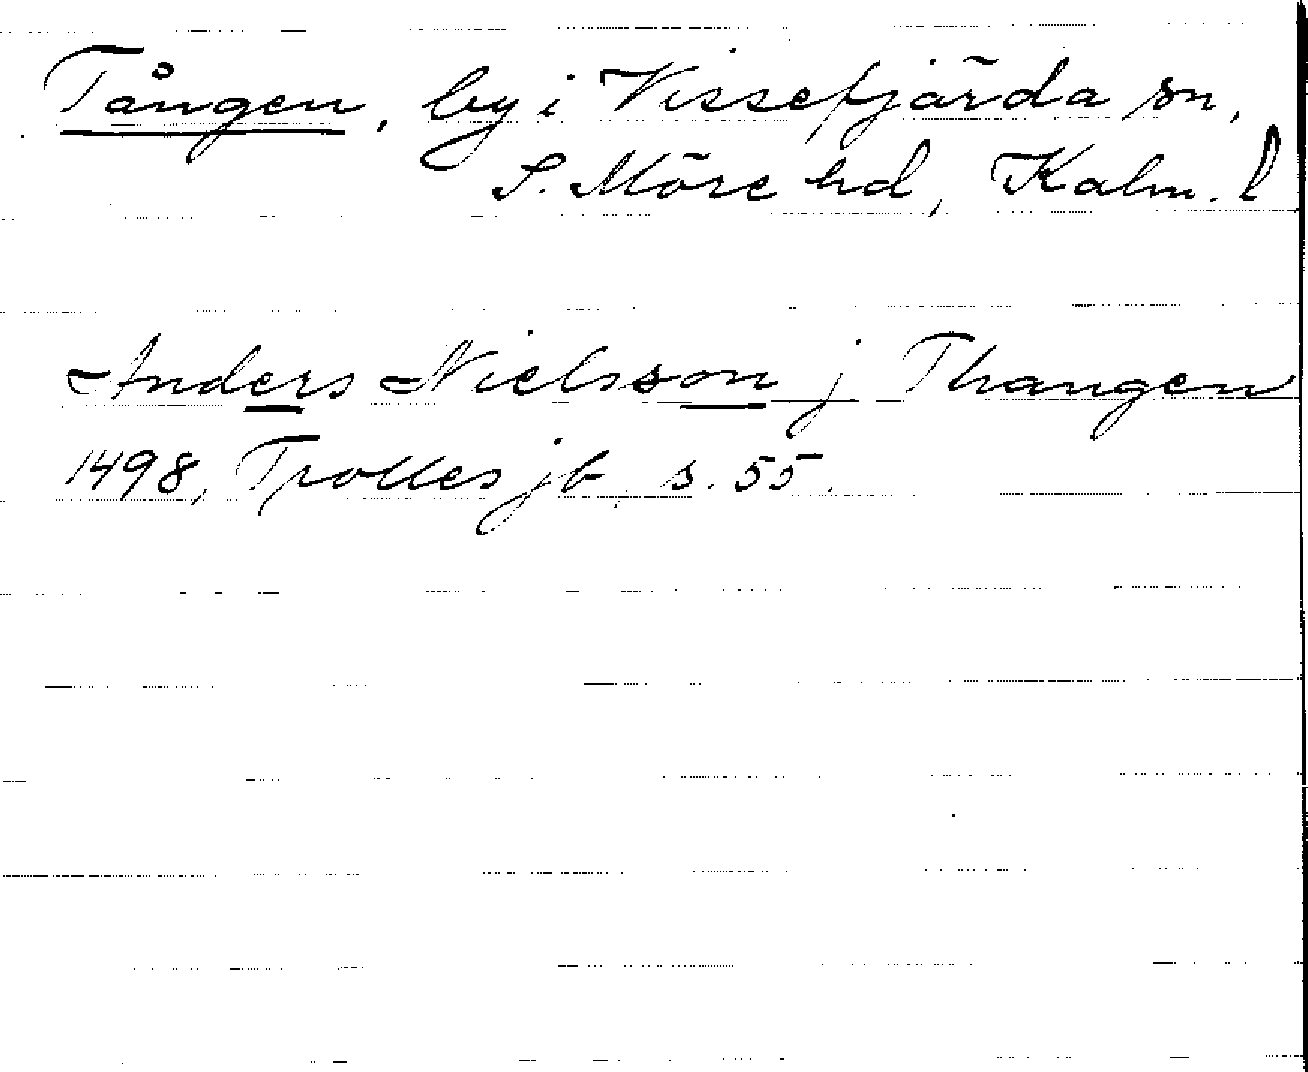 Tången, by i Vissefjärda sn,
S. Möre hd, Kalm. l
Anders Nielsson j Thangen
1498, Trolles jb, s. 55.